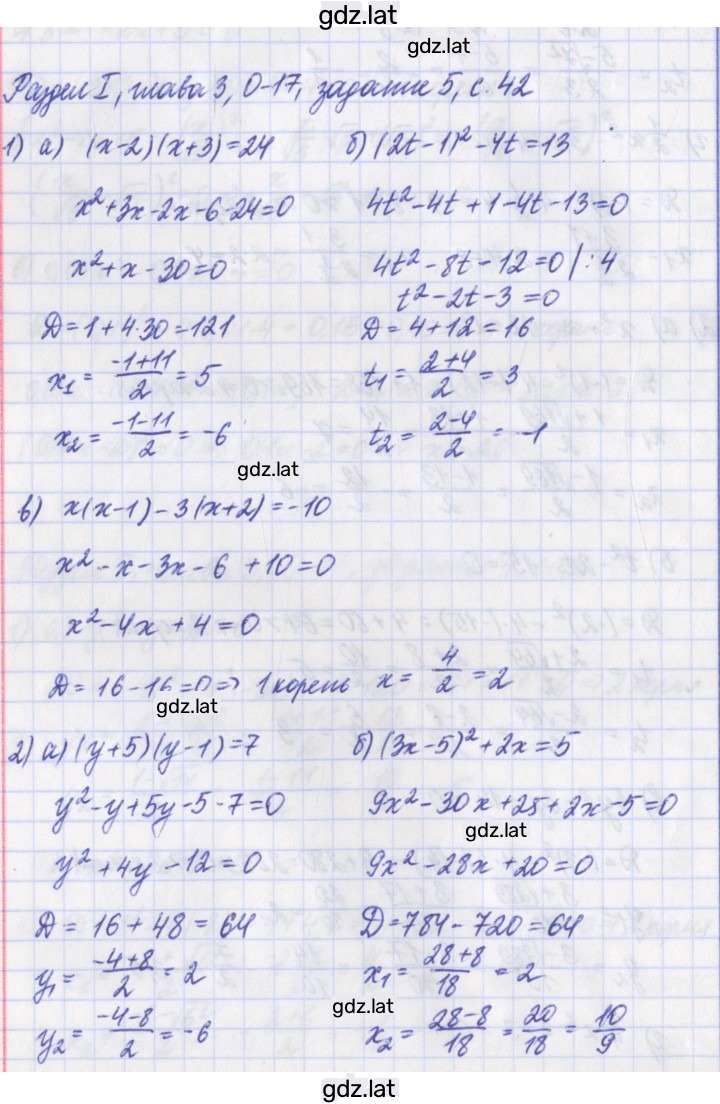 gdz.lat
gdz.lat
Раздел I, глава 3, О-17, задание 5, с. 42
1) а) (x-2)(x+3)=24
x²+3x-2x-6-24=0
x²+x-30=0
D=1+4·30=121
x₁ = (-1+11)/2 = 5
x₂ = (-1-11)/2 = -6
б) (2t-1)²-4t=13
4t²-4t+1-4t-13=0
4t²-8t-12=0 |:4
t²-2t-3=0
D=4+12=16
t₁ = (2+4)/2 = 3
t₂ = (2-4)/2 = -1
gdz.lat
в) x(x-1)-3(x+2)=-10
x²-x-3x-6+10=0
x²-4x+4=0
D=16-16=0 => 1 корень x = 4/2 = 2
gdz.lat
2) а) (y+5)(y-1)=7
y²-y+5y-5-7=0
y²+4y-12=0
D=16+48=64
y₁ = (-4+8)/2 = 2
y₂ = (-4-8)/2 = -6
б) (3x-5)²+2x=5
9x²-30x+25+2x-5=0
gdz.lat
9x²-28x+20=0
D=784-720=64
x₁ = (28+8)/18 = 2
gdz.lat
x₂ = (28-8)/18 = 20/18 = 10/9
gdz.lat